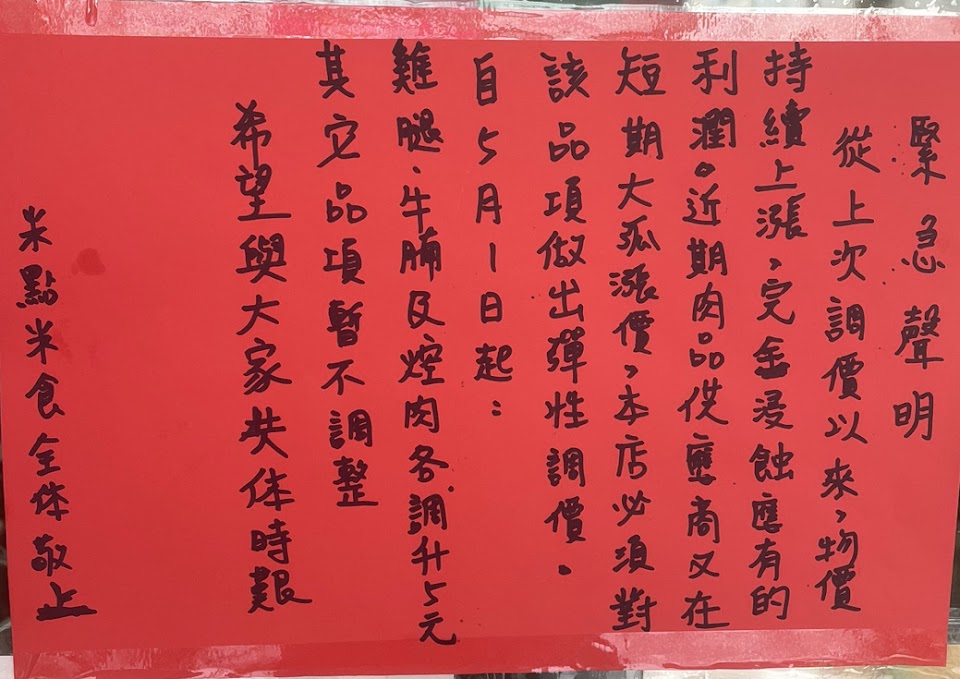 緊急聲明
從上次調價以來、物價
持續上漲、完全浸蝕應有的
利潤。近期肉品供應商又在
短期大孤漲價、本店必須對
該品項做出彈性調價。
自5月1日起：
雞腿、牛腩及焢肉各調升5元
其它品項暫不調整
希望與大家共体時艱
米點米食全体敬上